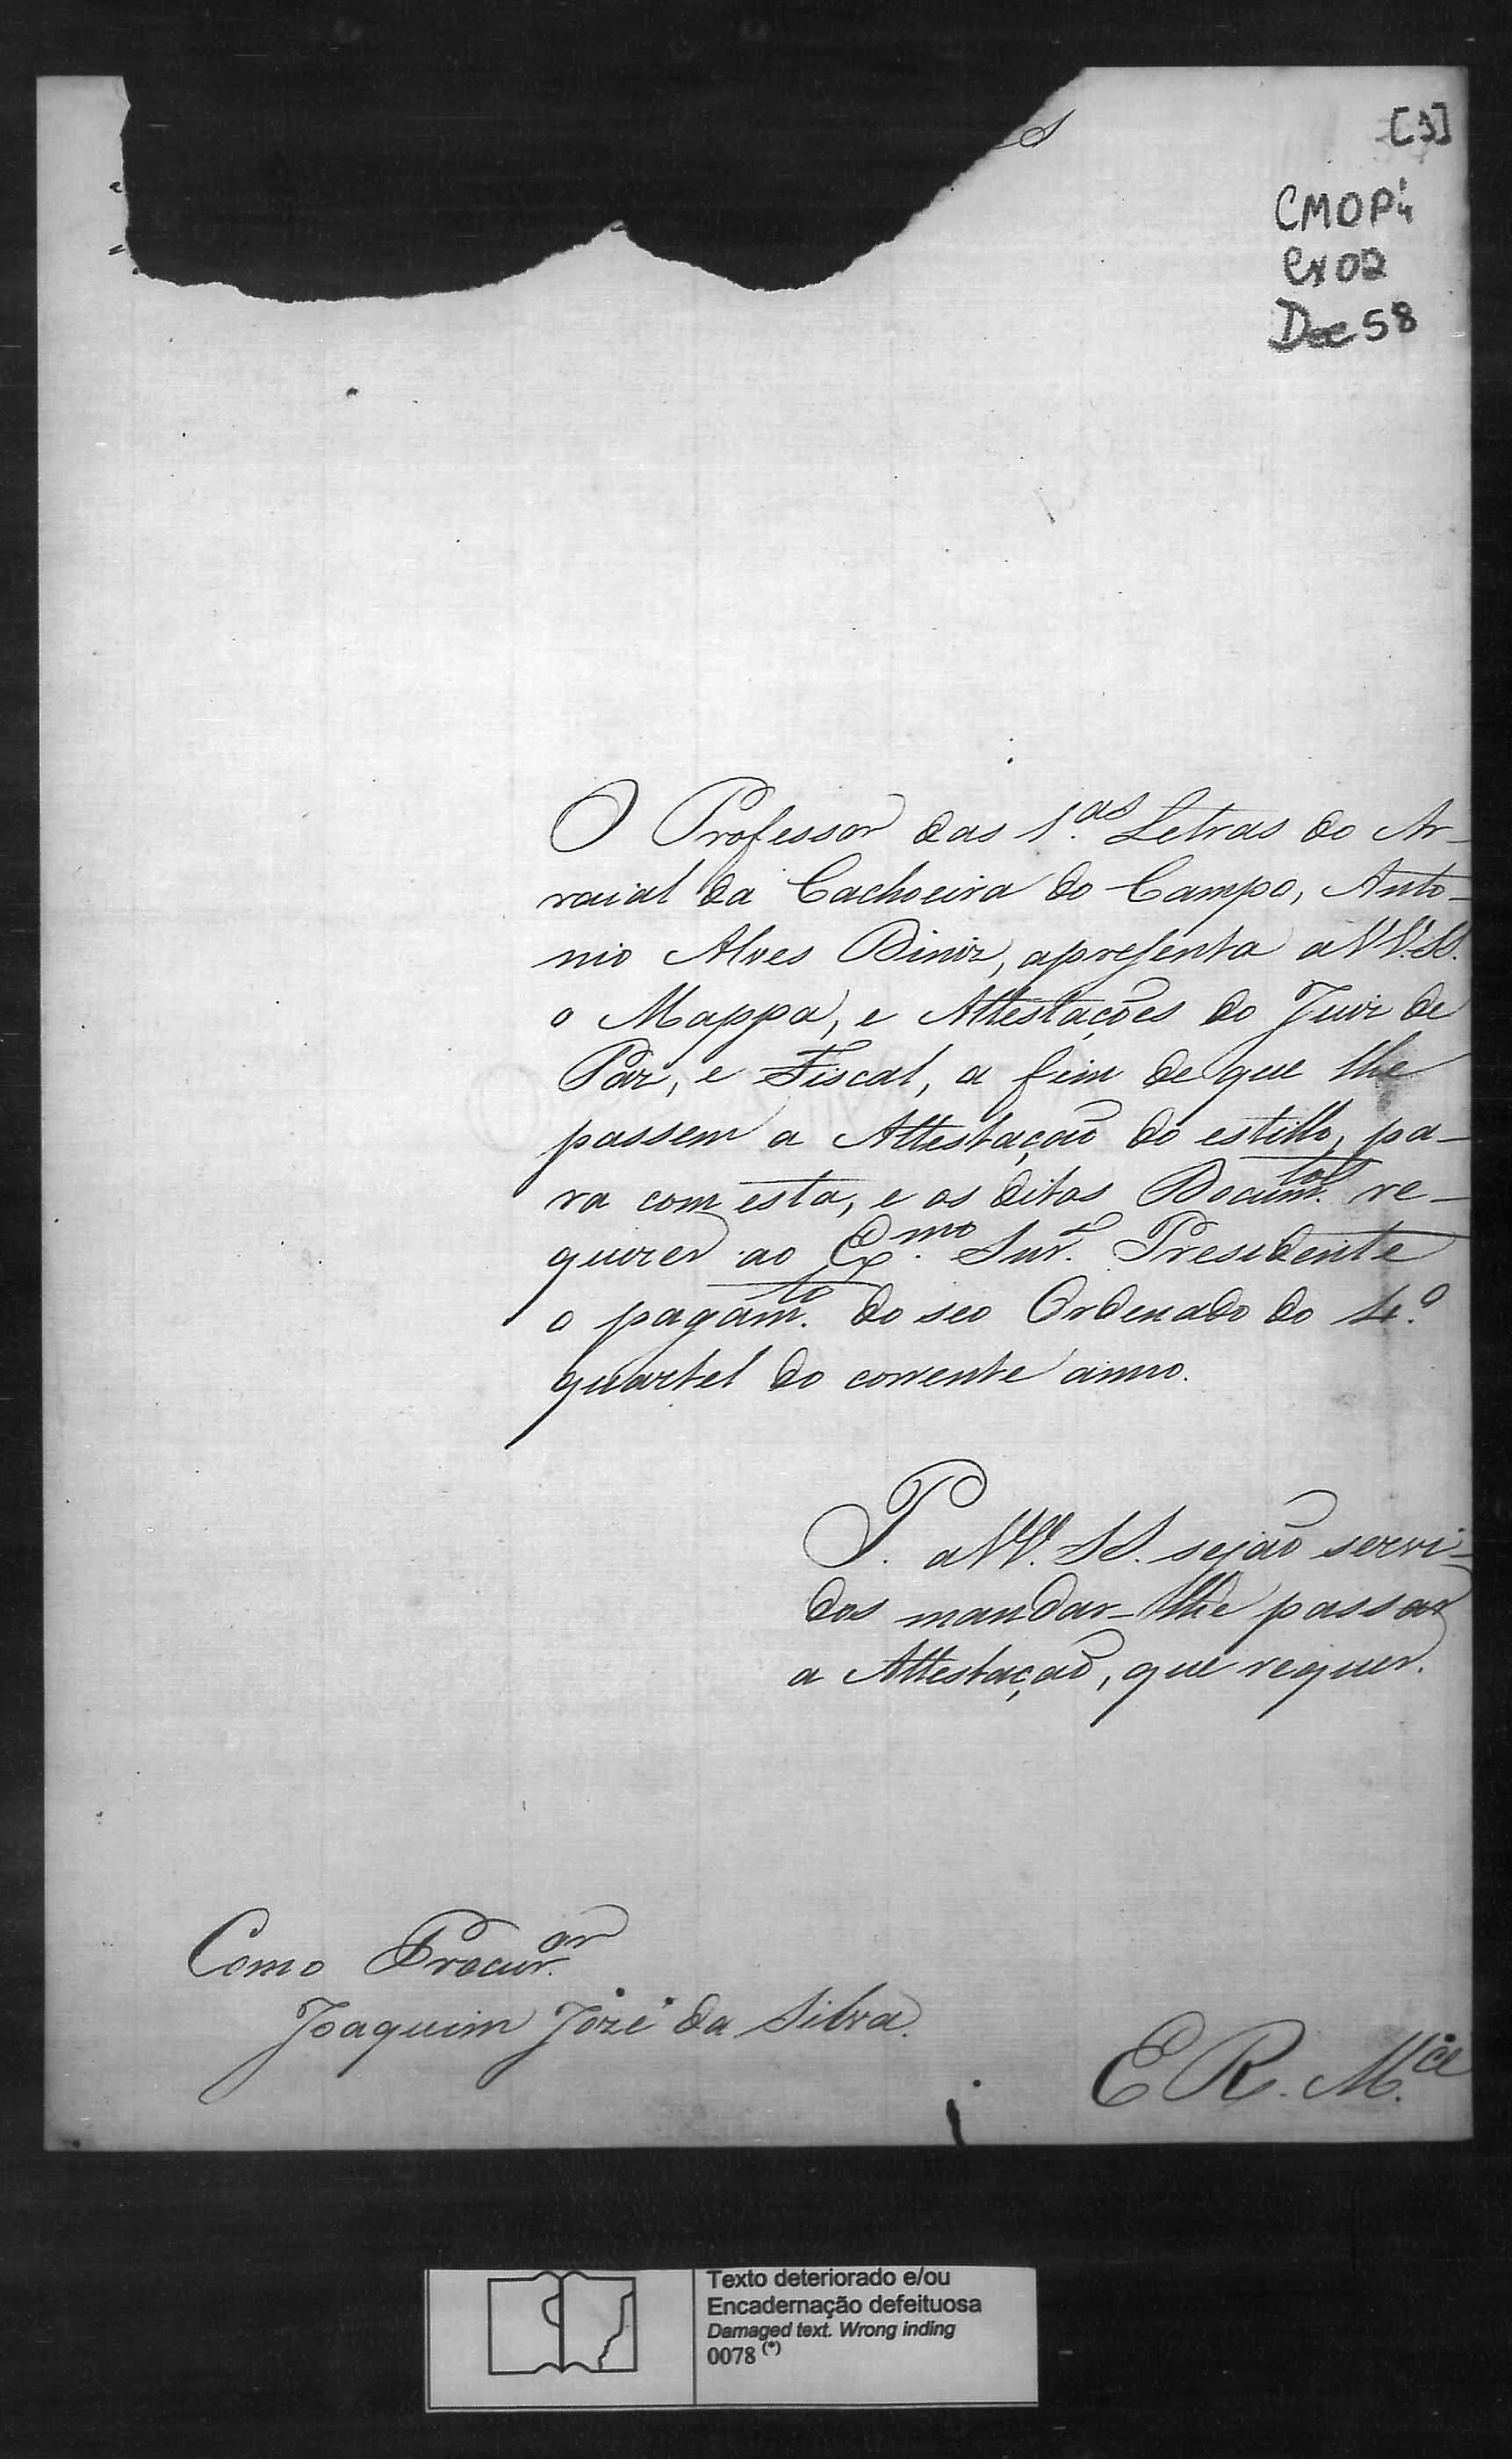 [1]
CMOP
Cx 02
Doc 58
O Professor das 1.as Letras do Ar-
raial da Cachoeira do Campo, Anto-
nio Alves Diniz, apresenta a VV. SS.
o Mappa, e Attestações do Juiz de
Paz, e Fiscal, a fim de que lhe
passem a Attestação do estillo, pa-
ra com esta, e os ditos Docum.tos re-
querer ao Ex.mo Snr. Presidente
o pagam.to do seo Ordenado do 4.o
quartel do corrente anno.
P. a VV. SS. sejão servi-
dos mandar-lhe passar
a Attestação, que requer.
Como Procur.or
Joaquim Jozé da Silva.
E R. M.ce
Texto deteriorado e/ou
Encadernação defeituosa
Damaged text. Wrong inding
0078 (*)